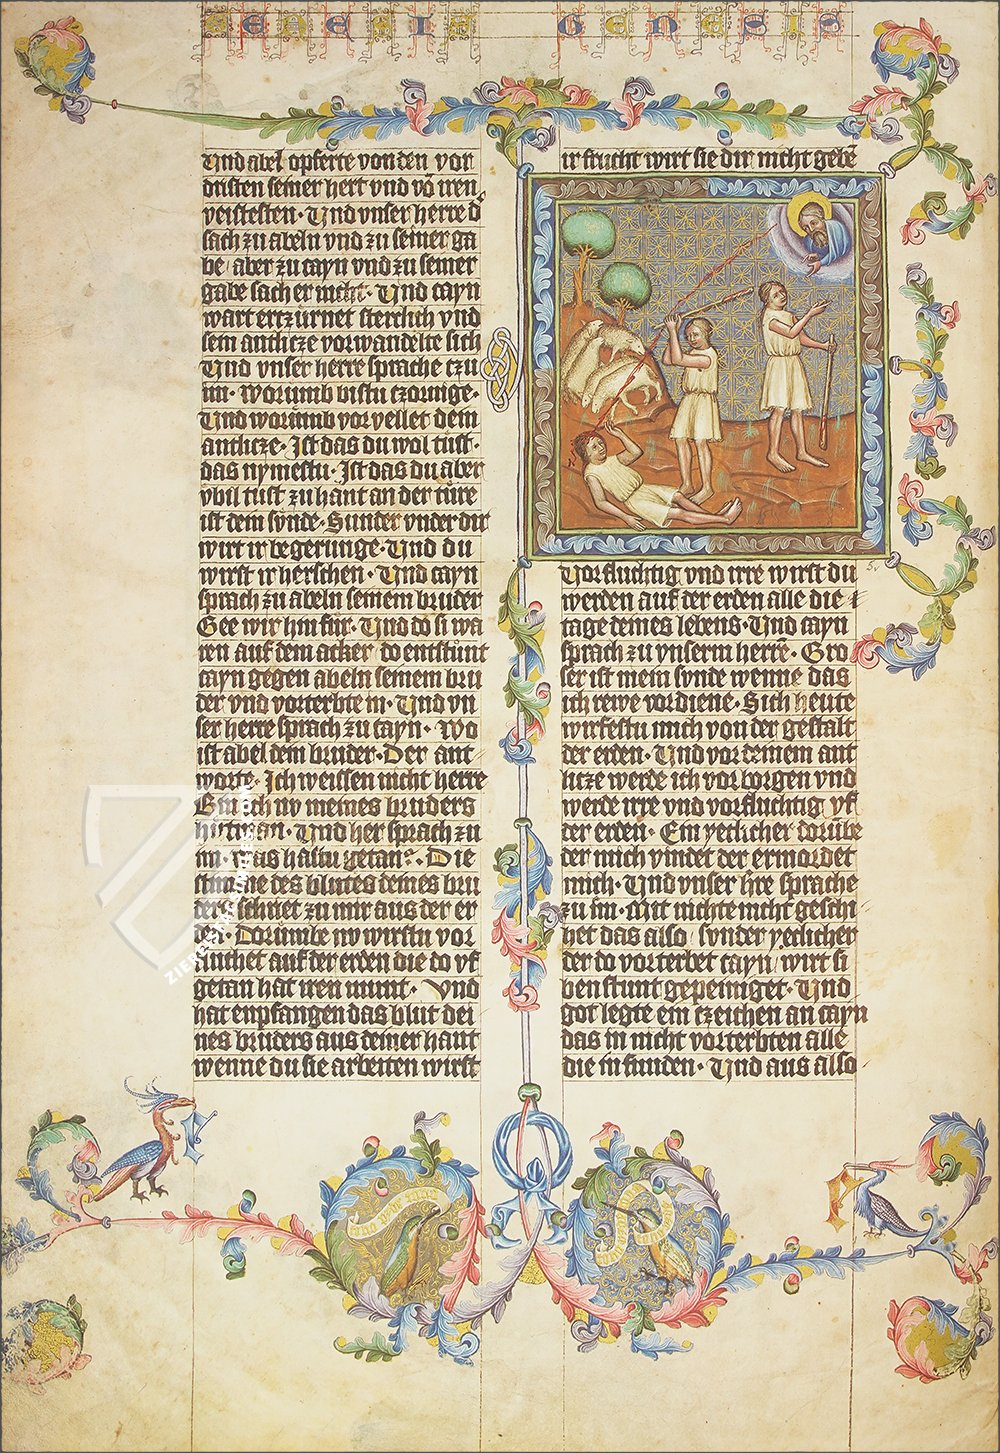 GENESIS GENESIS
Und abel opferte von den vor
dristen seiner hert vnd võ iren
veistesten · Und vnser herre d
sach zu abeln vnd zu seiner ga
be / aber zu cayn vnd zu seiner
gabe sach er nicht · Und cayn
wart erczürnet sterclich vnd
sein antlicze vorwandelte sich
Und vnser herre sprache czu
im · Worumb bistu czornige ·
Und worumb vorvellet dein
antlicze · Ist das du wol tust ·
das nymestu · Ist das du aber
vbil tust zu hant an der türe
ist dein sünde · Sunder vnder dir
wirt ir begerunge · Und du
wirst ir herschen · Und cayn
sprach zu abeln seinem bruder
Gee wir hin für · Und do si wa
ren auf dem acker do entstunt
cayn gegen abeln seinem bru
der vnd vorterbte in · Und vn
ser herre sprach zu cayn · Wo
ist abel dein bruder · Der ant
worte · Ich weissen nicht herre
Bin ich ny meines bruders
hutman · Und her sprach zu
im · Was hastu getan? · Die
stimme des blutes deines bru
ders schriet zu mir aus der er
den · Dorumbe ny wirstu vor
fluchet auf der erden die do vf
getan hat iren munt · Vnd
hat enpfangen das blut dei
nes bruders aus deiner hant
wenne du sie arbeiten wirst
ir frucht wirt sie dir nicht gebẽ
5v
Vorfluchtig vnd irre wirst du
werden auf der erden alle die
tage deines lebens · Und cayn
sprach zu vnserm herrẽ · Gro
ser ist mein sunde wenne das
ich rewe vordiene · Sich heute
wirfestu mich von der gestalt
der erden · Und vor deinem ant
licze werde ich vorborgen vnd
werde irre vnd vorfluchtig vf
der erden · Ein yeclicher dorũbe
der mich vindet der ermordet
mich · Und vnser h̃re sprache
zu im · Mit nichte nicht geschi
het das also / sunder yeclicher
der do vorterbet cayn / wirt si
ben stunt gepeiniget · Und
got legte ein czeichen an cayn
das in nicht vorterbten alle
die in funden · Und aus also